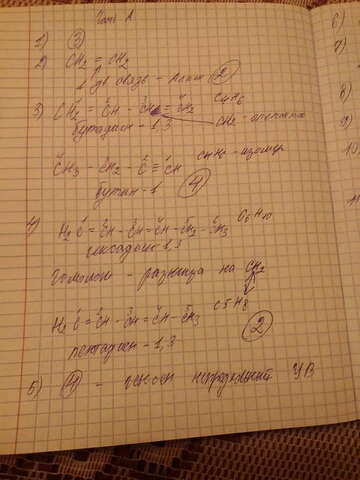 Часть А
1) 3
2) CH2 = CH2
1 дв связь - Алкен 2
3) CH2 = CH - CH = CH2 C4H6
бутадиен - 1,3 CH2 -
CH3 - CH2 - C ≡ CH C4H6 - изомер
бутин - 1 4
4) H2C = CH - CH = CH - CH2 - CH3 C6H10
гексадиен 1,3
гомологи - разница на CH2
H2C = CH - CH = CH - CH3 C5H8
пентадиен - 1,3 2
5) 4 - УВ
6)
7)
8)
9)
10